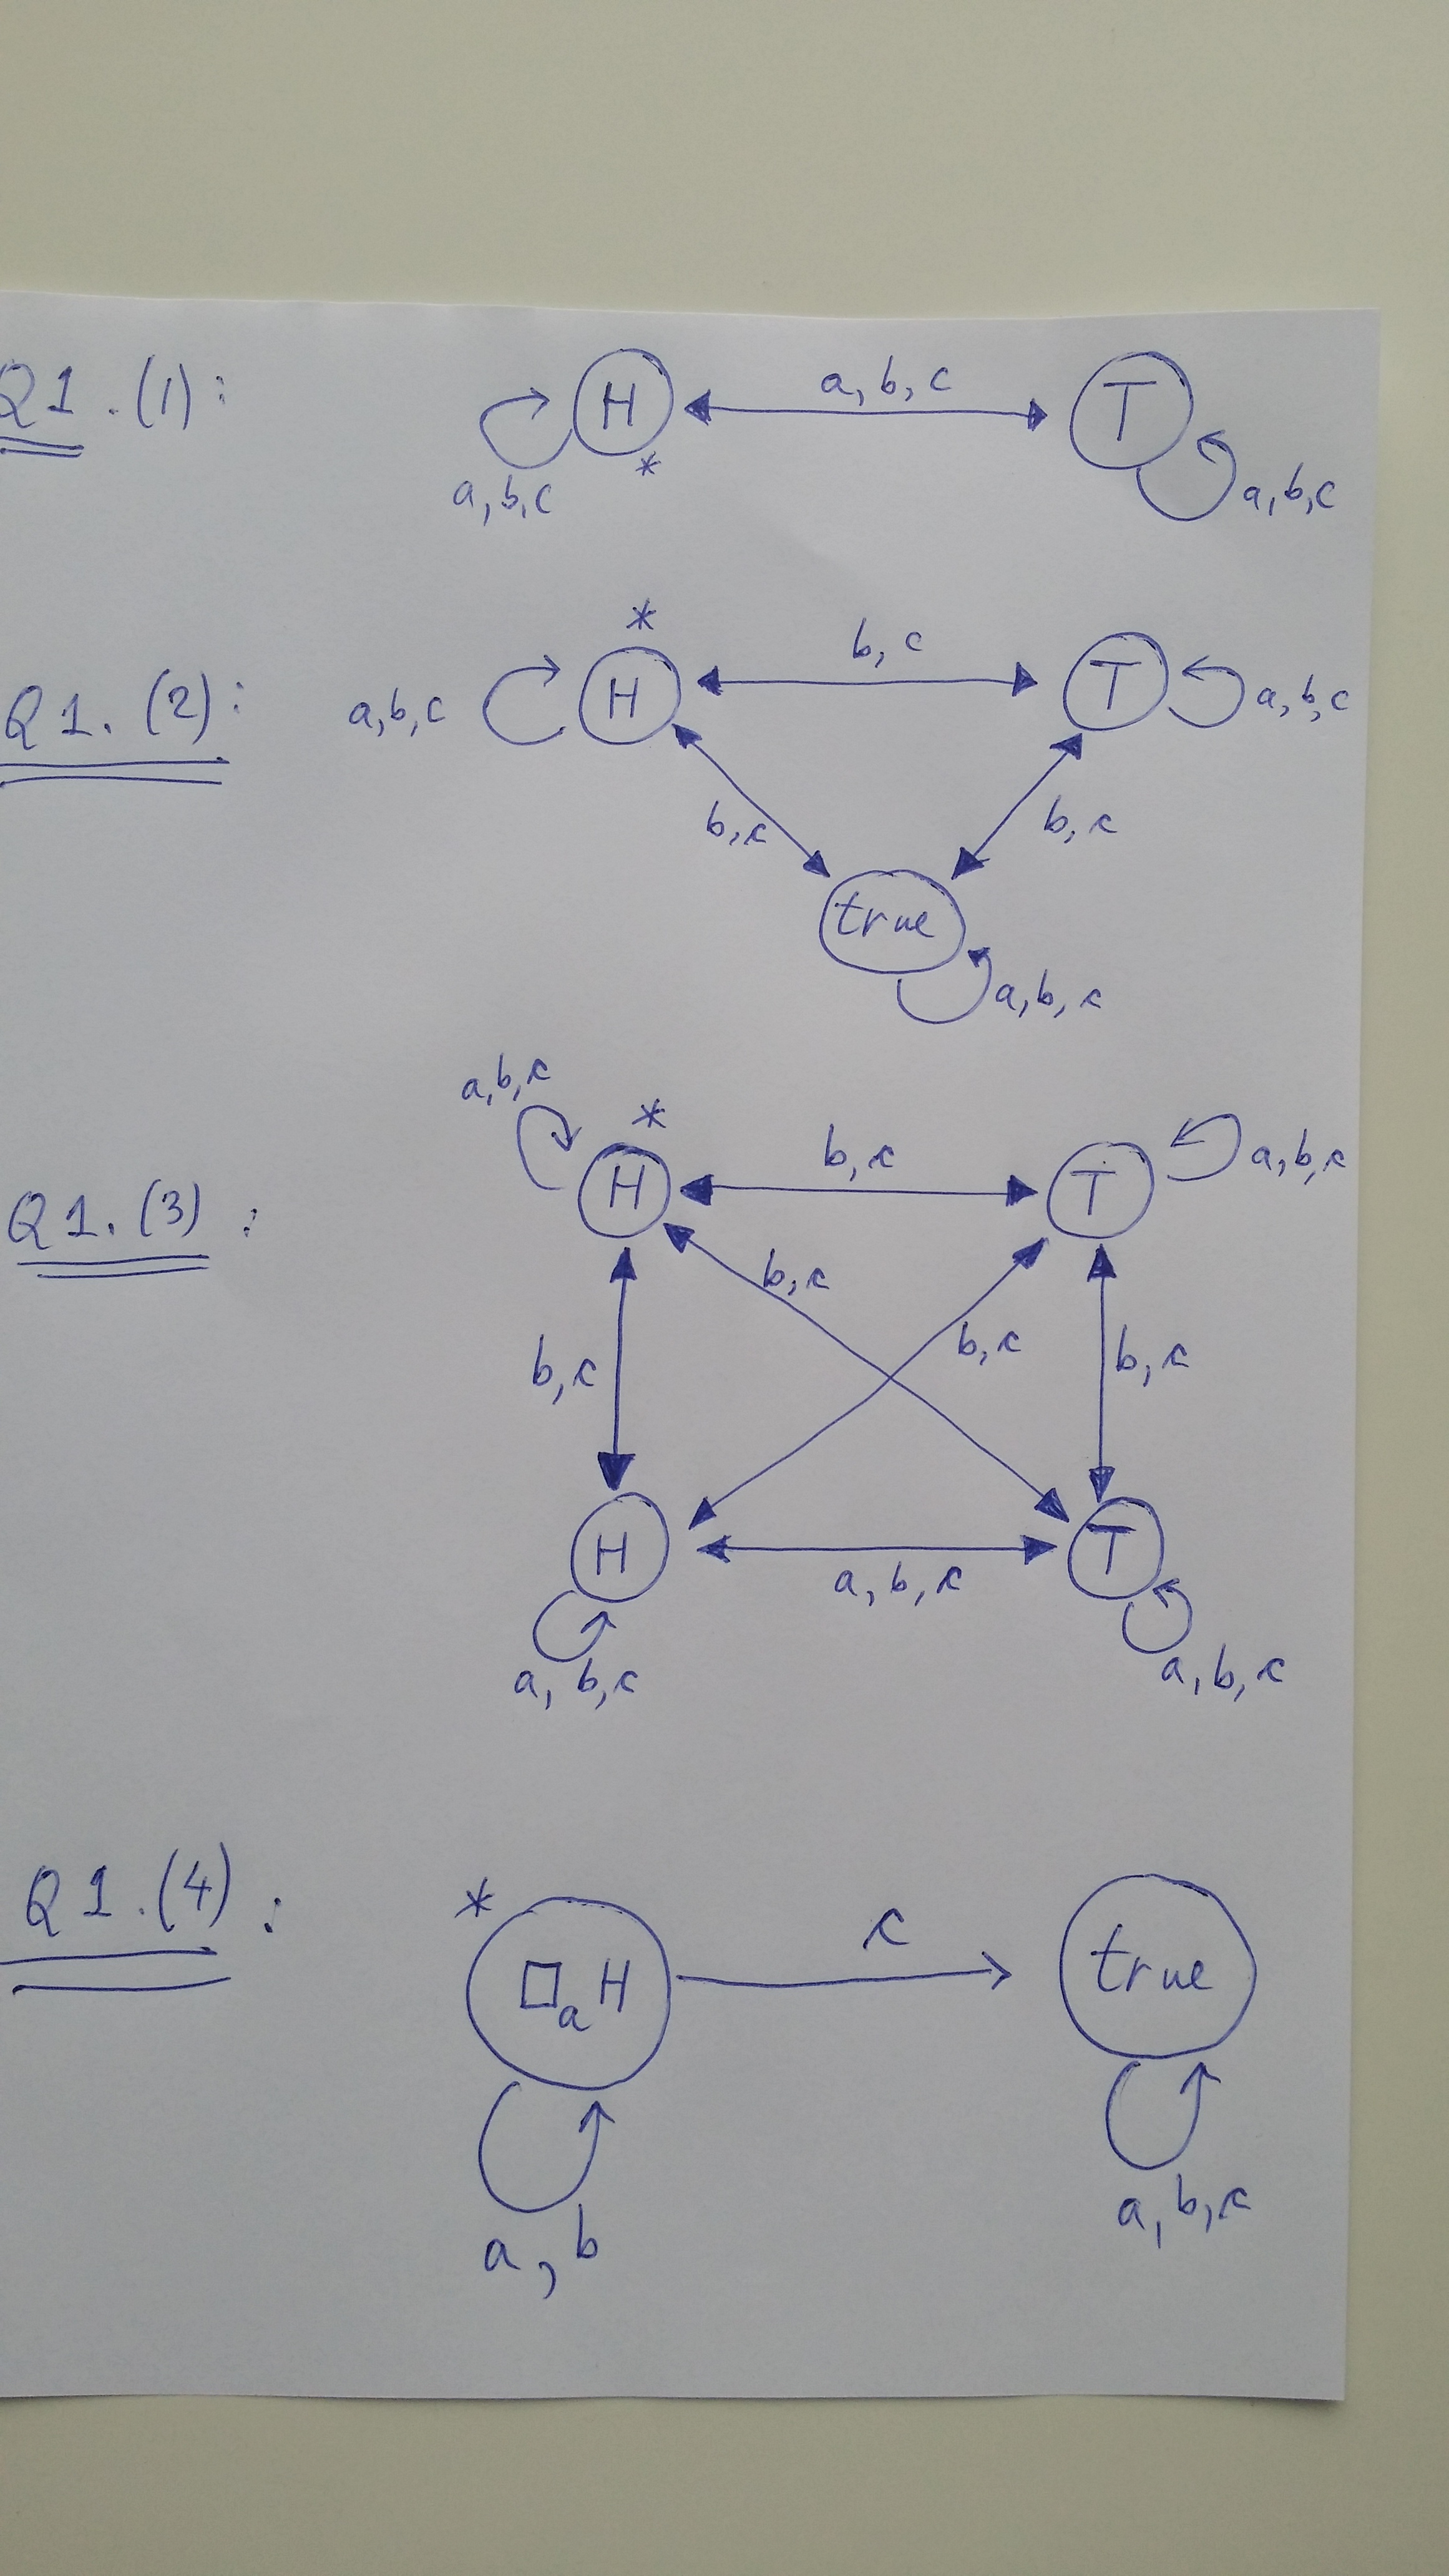 Q1.(1):
H
*
a, b, c
T
a, b, c
a, b, c
Q1.(2):
*
H
a, b, c
b, c
T
a, b, c
b, c
b, c
true
a, b, c
Q1.(3):
a, b, c
*
H
b, c
T
a, b, c
b, c
b, c
b, c
b, c
H
a, b, c
T
a, b, c
a, b, c
Q1.(4):
*
□ₐH
c
true
a, b
a, b, c